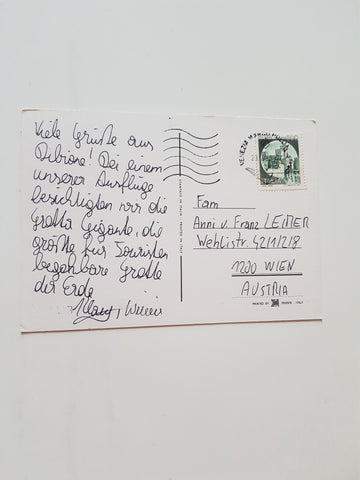 Viele Grüße aus
Bibione! Bei einem
unserer Ausflüge
besichtigten wir die
Grotta Gigante, die
größte für Touristen
begehbare Grotte
der Erde
Fam
Anni u. Franz LEITER
Wehlistr. 42/1/2/8
1200 WIEN
AUSTRIA
VENEZIA
PRINTED IN ITALY